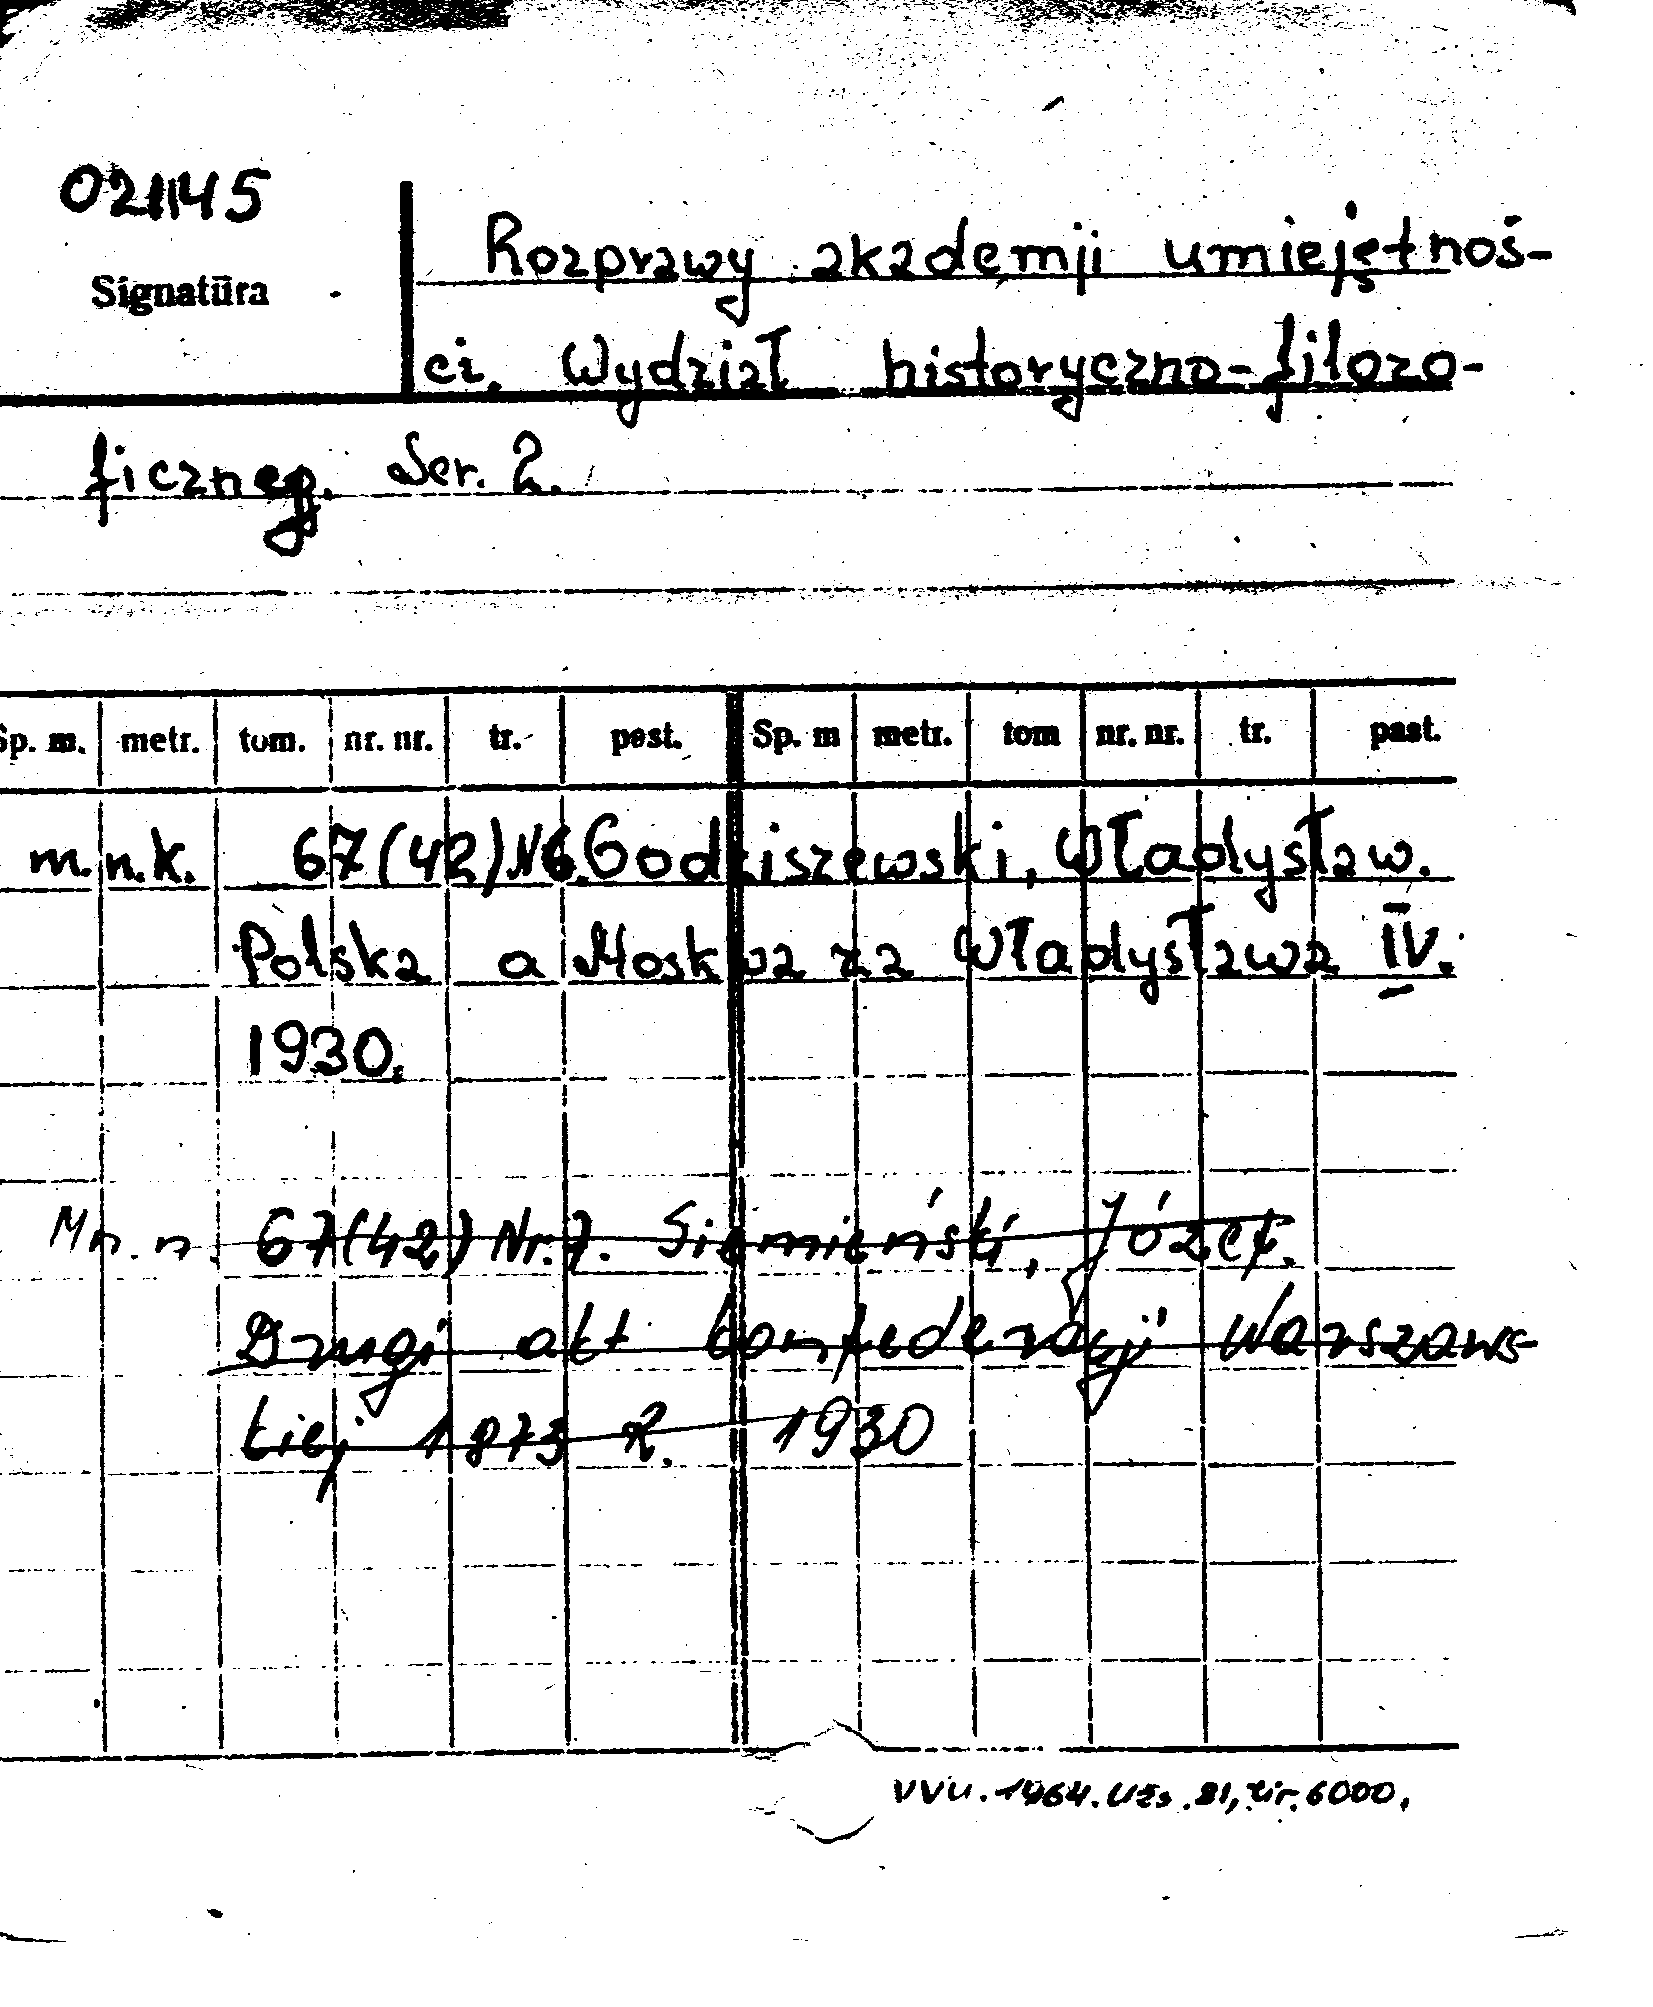 021145
Signatūra
Rozprawy akademji umiejętnoś-
ci. Wydział historyczno-filozo-
ficzneg. Ser. 2.
Sp. m. metr. tom. nr. nr. tr. past. Sp. m metr. tom nr. nr. tr. past.
m.n.k. 67(42)N6. Godziszewski, Władysław.
Polska a Moskwa za Władysława IV.
1930.
Mn.n. 67(42) Nr.7. Siemieński, Józef.
Drugi akt konfederacji Warszaws-
kiej 1873 r. 1930
VVU.1964.Užs.81,tir.6000.